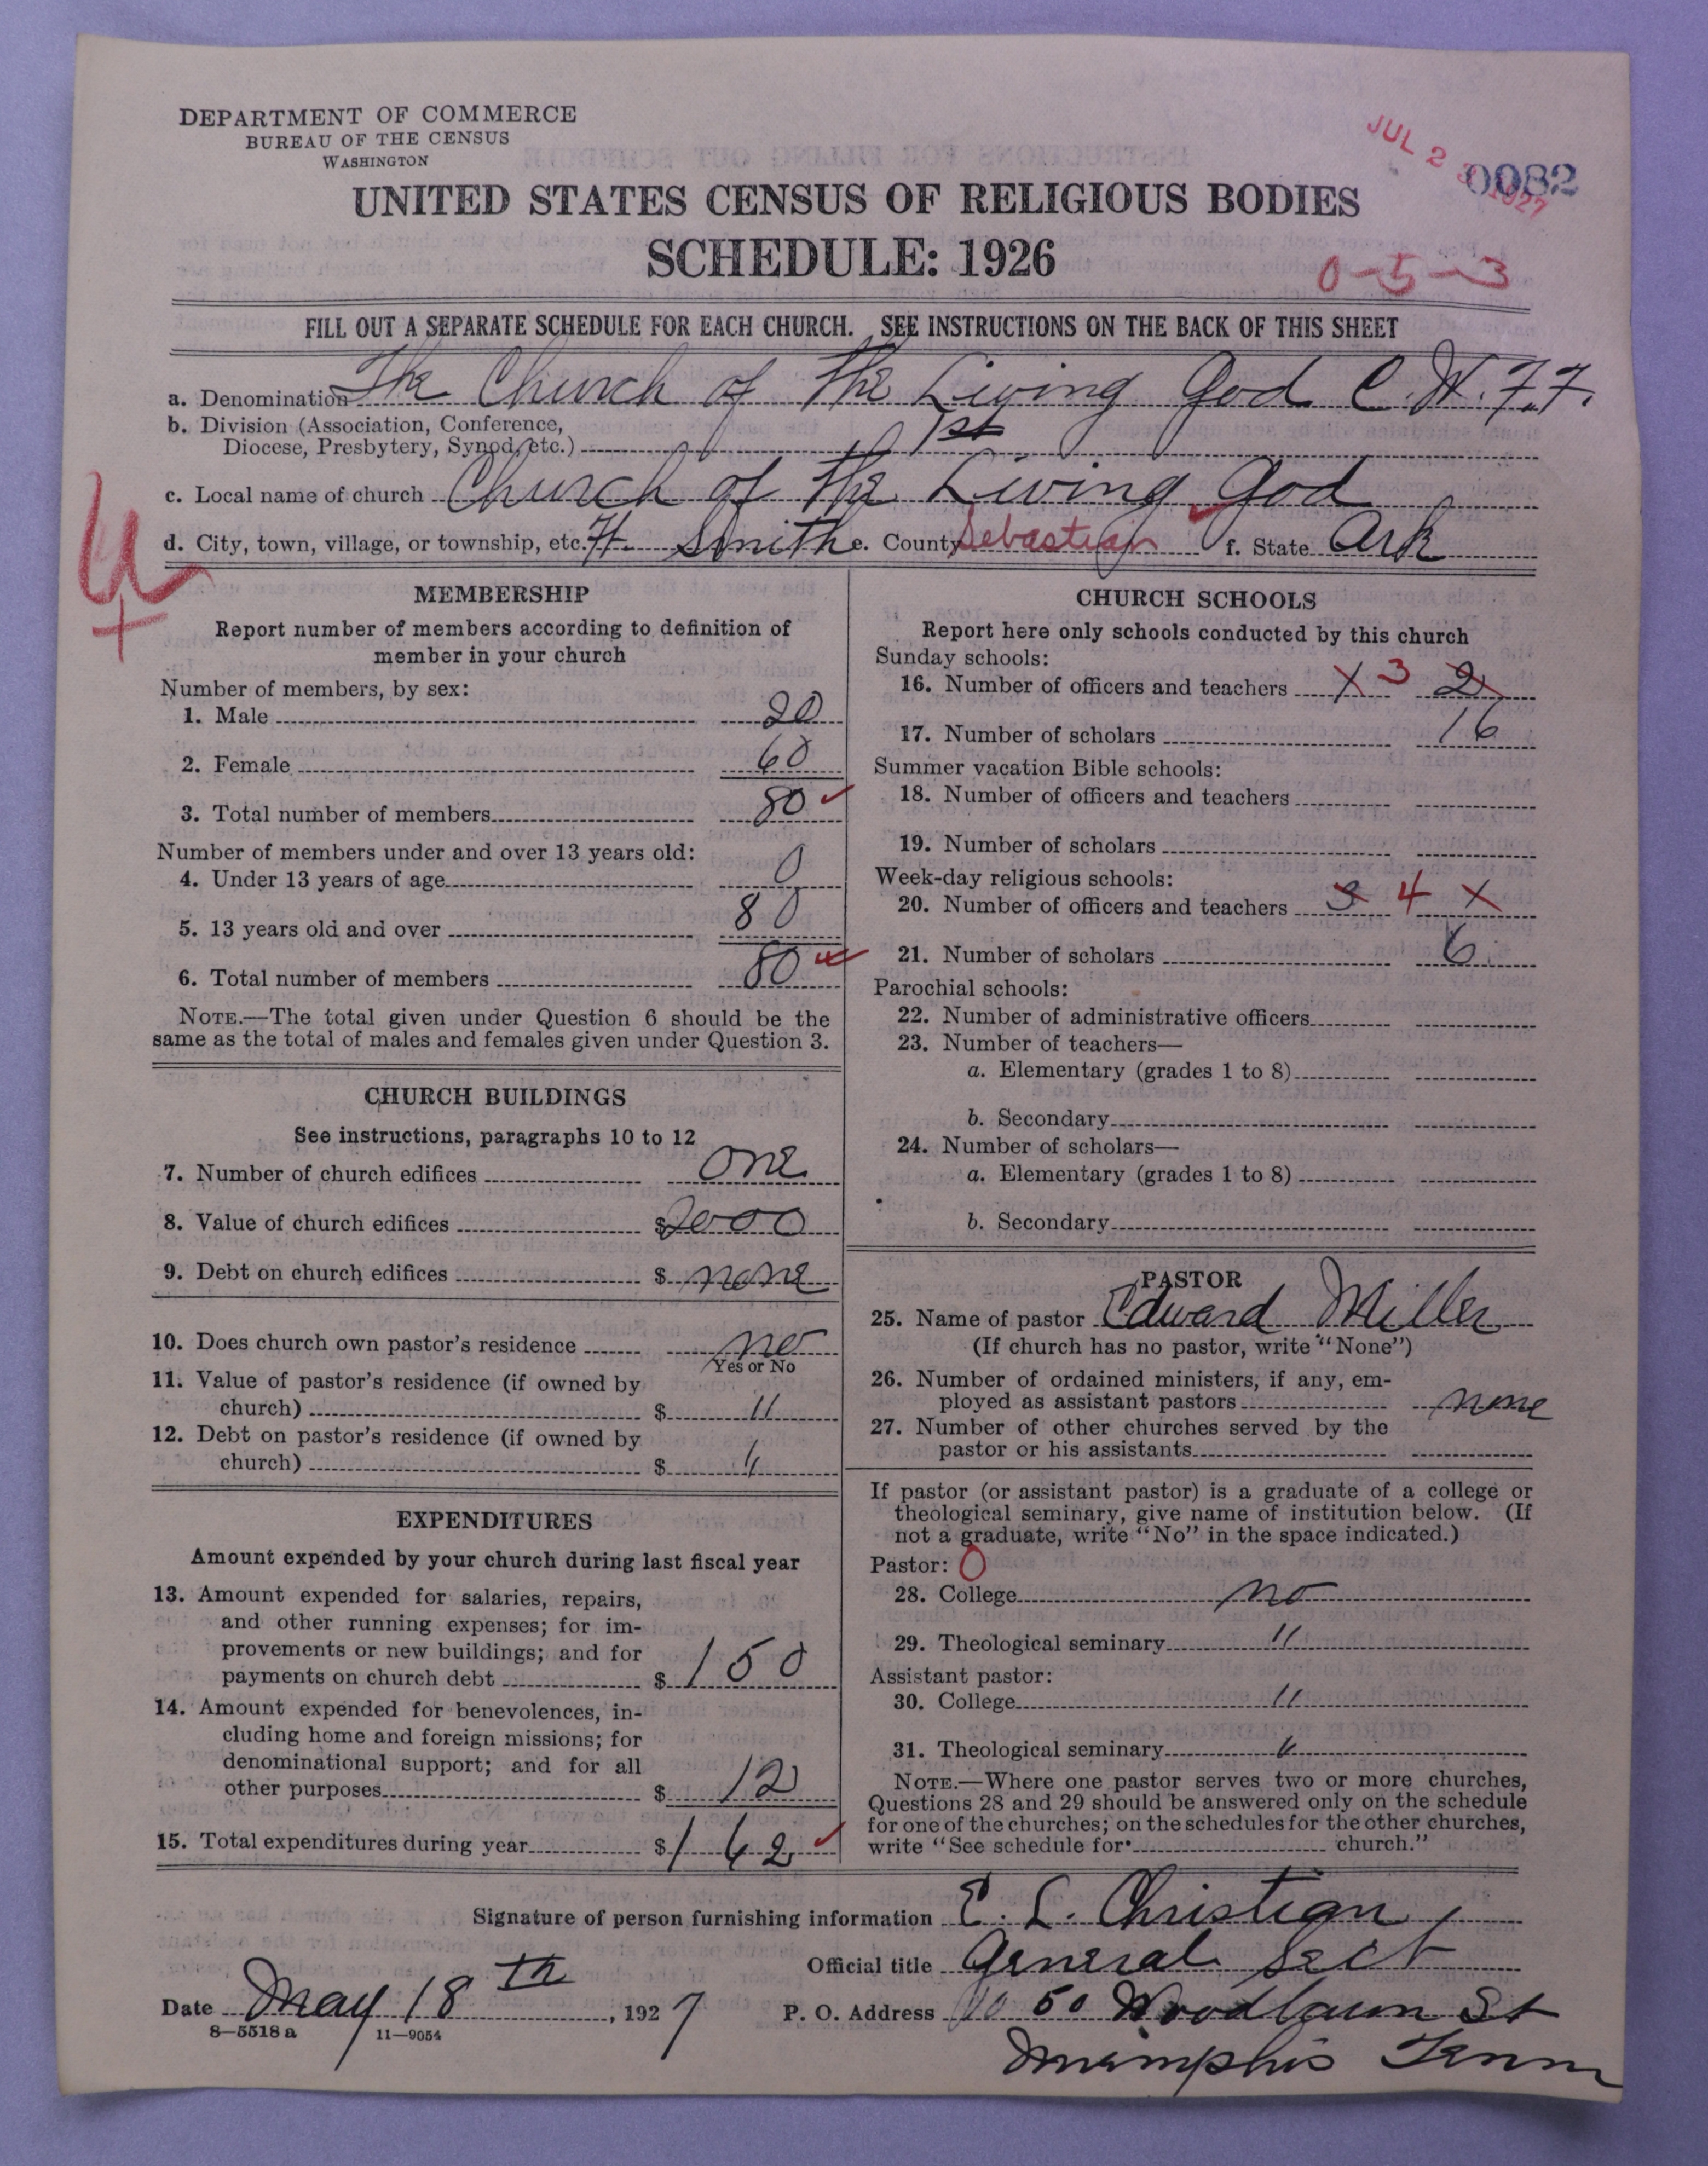 DEPARTMENT OF COMMERCE
BUREAU OF THE CENSUS
WASHINGTON
JUL 2 1927
0082
UNITED STATES CENSUS OF RELIGIOUS BODIES
SCHEDULE: 1926
0-5-3
FILL OUT A SEPARATE SCHEDULE FOR EACH CHURCH. SEE INSTRUCTIONS ON THE BACK OF THIS SHEET
a. Denomination The Church of The Living God C.W.F.F.
b. Division (Association, Conference,
Diocese, Presbytery, Synod, etc.) 1st
c. Local name of church Church of The Living God
d. City, town, village, or township, etc. Ft. Smith e. County Sebastian f. State Ark
MEMBERSHIP
Report number of members according to definition of
member in your church
Number of members, by sex:
1. Male 20
2. Female 60
3. Total number of members 80
Number of members under and over 13 years old:
4. Under 13 years of age 0
5. 13 years old and over 80
6. Total number of members 80
NOTE.—The total given under Question 6 should be the
same as the total of males and females given under Question 3.
CHURCH BUILDINGS
See instructions, paragraphs 10 to 12
7. Number of church edifices one
8. Value of church edifices $ 2000
9. Debt on church edifices $ none
10. Does church own pastor's residence no
Yes or No
11. Value of pastor's residence (if owned by
church) $ "
12. Debt on pastor's residence (if owned by
church) $ "
EXPENDITURES
Amount expended by your church during last fiscal year
13. Amount expended for salaries, repairs,
and other running expenses; for im-
provements or new buildings; and for
payments on church debt $ 150
14. Amount expended for benevolences, in-
cluding home and foreign missions; for
denominational support; and for all
other purposes $ 12
15. Total expenditures during year $ 162
CHURCH SCHOOLS
Report here only schools conducted by this church
Sunday schools:
16. Number of officers and teachers X 3 2
17. Number of scholars 16
Summer vacation Bible schools:
18. Number of officers and teachers
19. Number of scholars
Week-day religious schools:
20. Number of officers and teachers 3 4 X
21. Number of scholars 6
Parochial schools:
22. Number of administrative officers
23. Number of teachers—
a. Elementary (grades 1 to 8)
b. Secondary
24. Number of scholars—
a. Elementary (grades 1 to 8)
b. Secondary
PASTOR
25. Name of pastor Edward Miller
(If church has no pastor, write "None")
26. Number of ordained ministers, if any, em-
ployed as assistant pastors none
27. Number of other churches served by the
pastor or his assistants
If pastor (or assistant pastor) is a graduate of a college or
theological seminary, give name of institution below. (If
not a graduate, write "No" in the space indicated.)
Pastor: 0
28. College no
29. Theological seminary "
Assistant pastor:
30. College "
31. Theological seminary "
NOTE.—Where one pastor serves two or more churches,
Questions 28 and 29 should be answered only on the schedule
for one of the churches; on the schedules for the other churches,
write "See schedule for church."
Signature of person furnishing information E. L. Christian
Official title General Sect
Date May 18 th, 1927 P. O. Address 50 Woodlawn St
8—5518 a 11—9054
Memphis Tenn